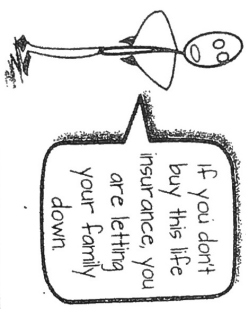 If you don't
buy this life
insurance, you
are letting
your family
down.